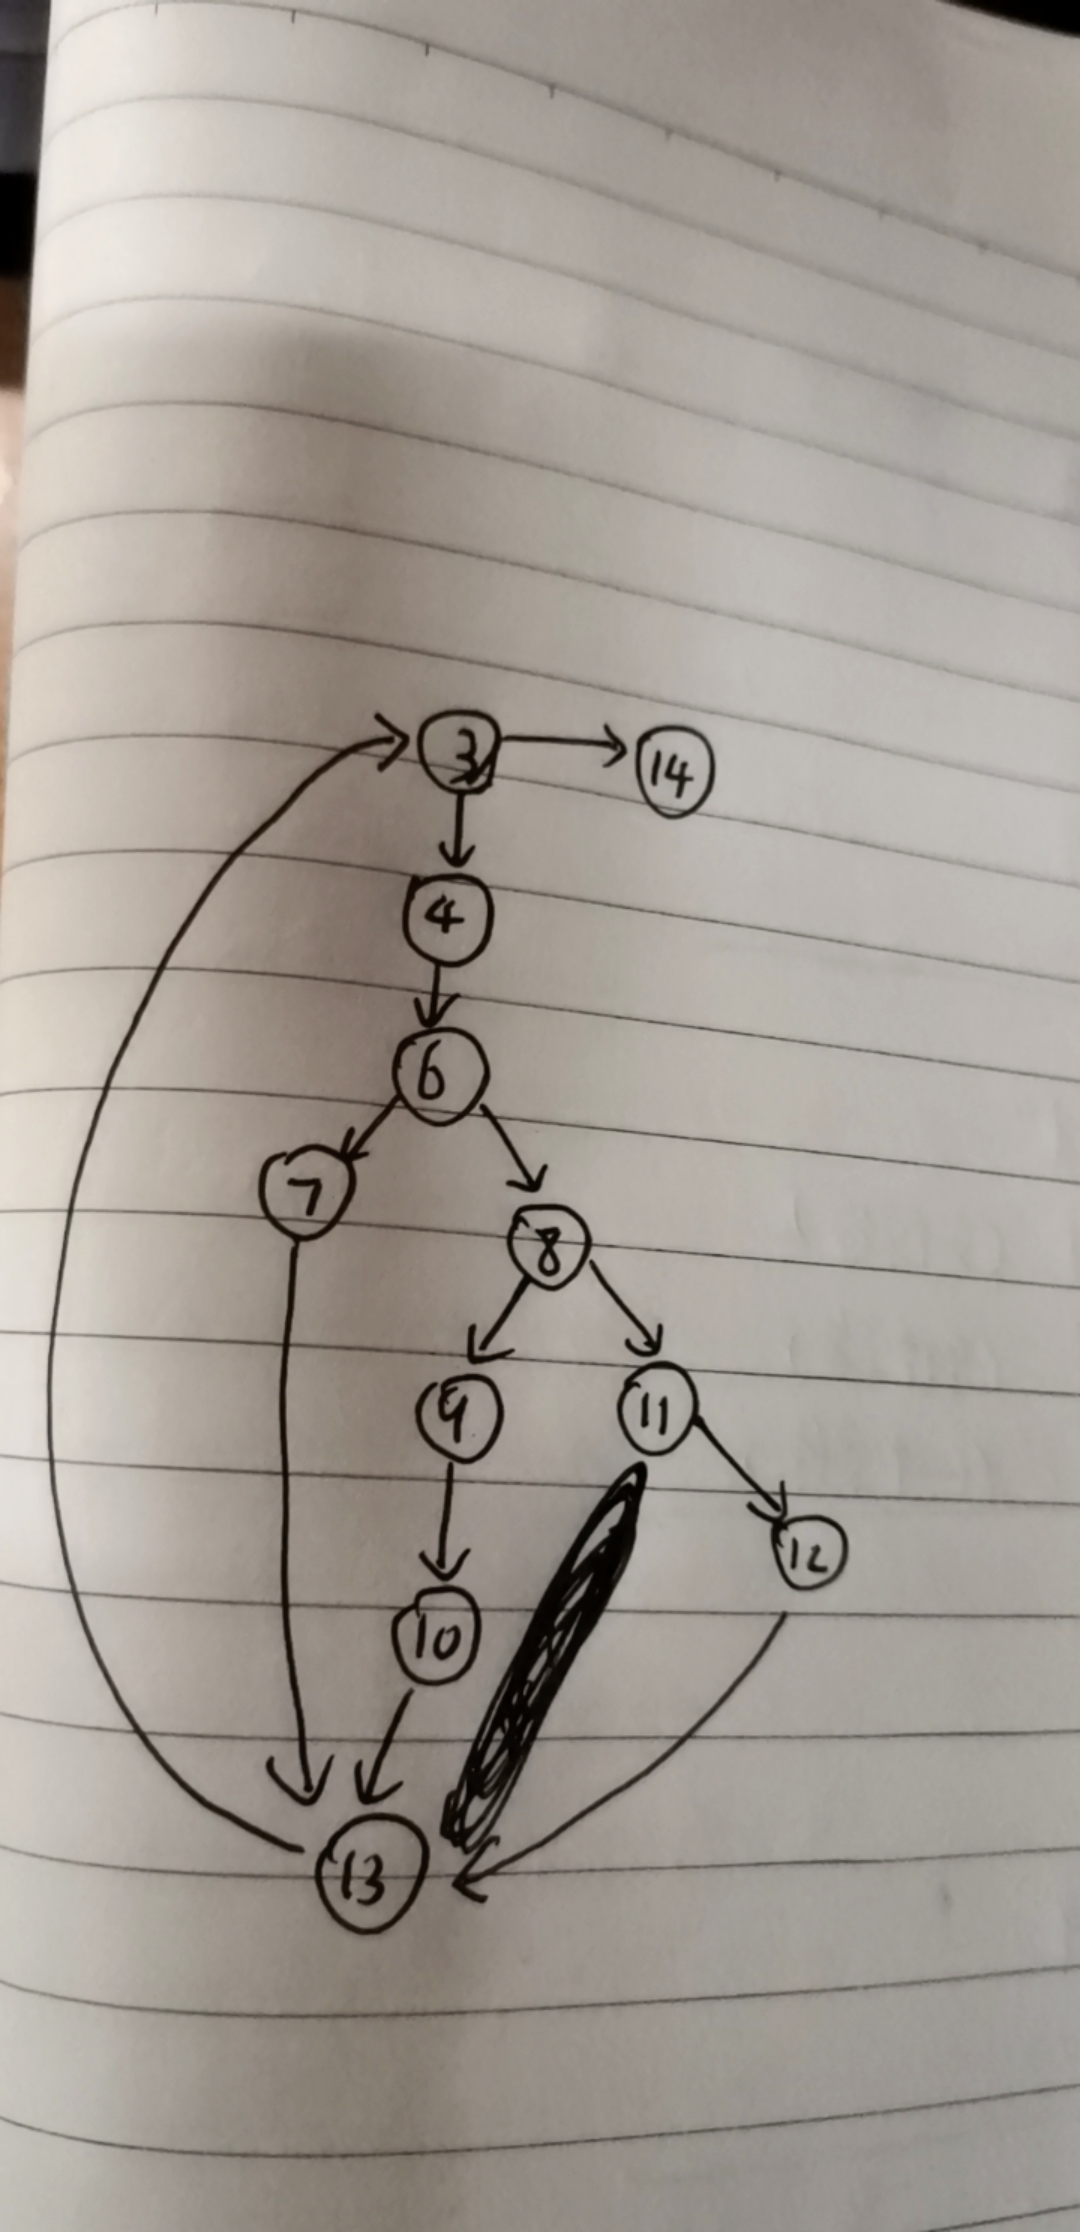 3 14
4
6
7
8
9 11
12
10
13